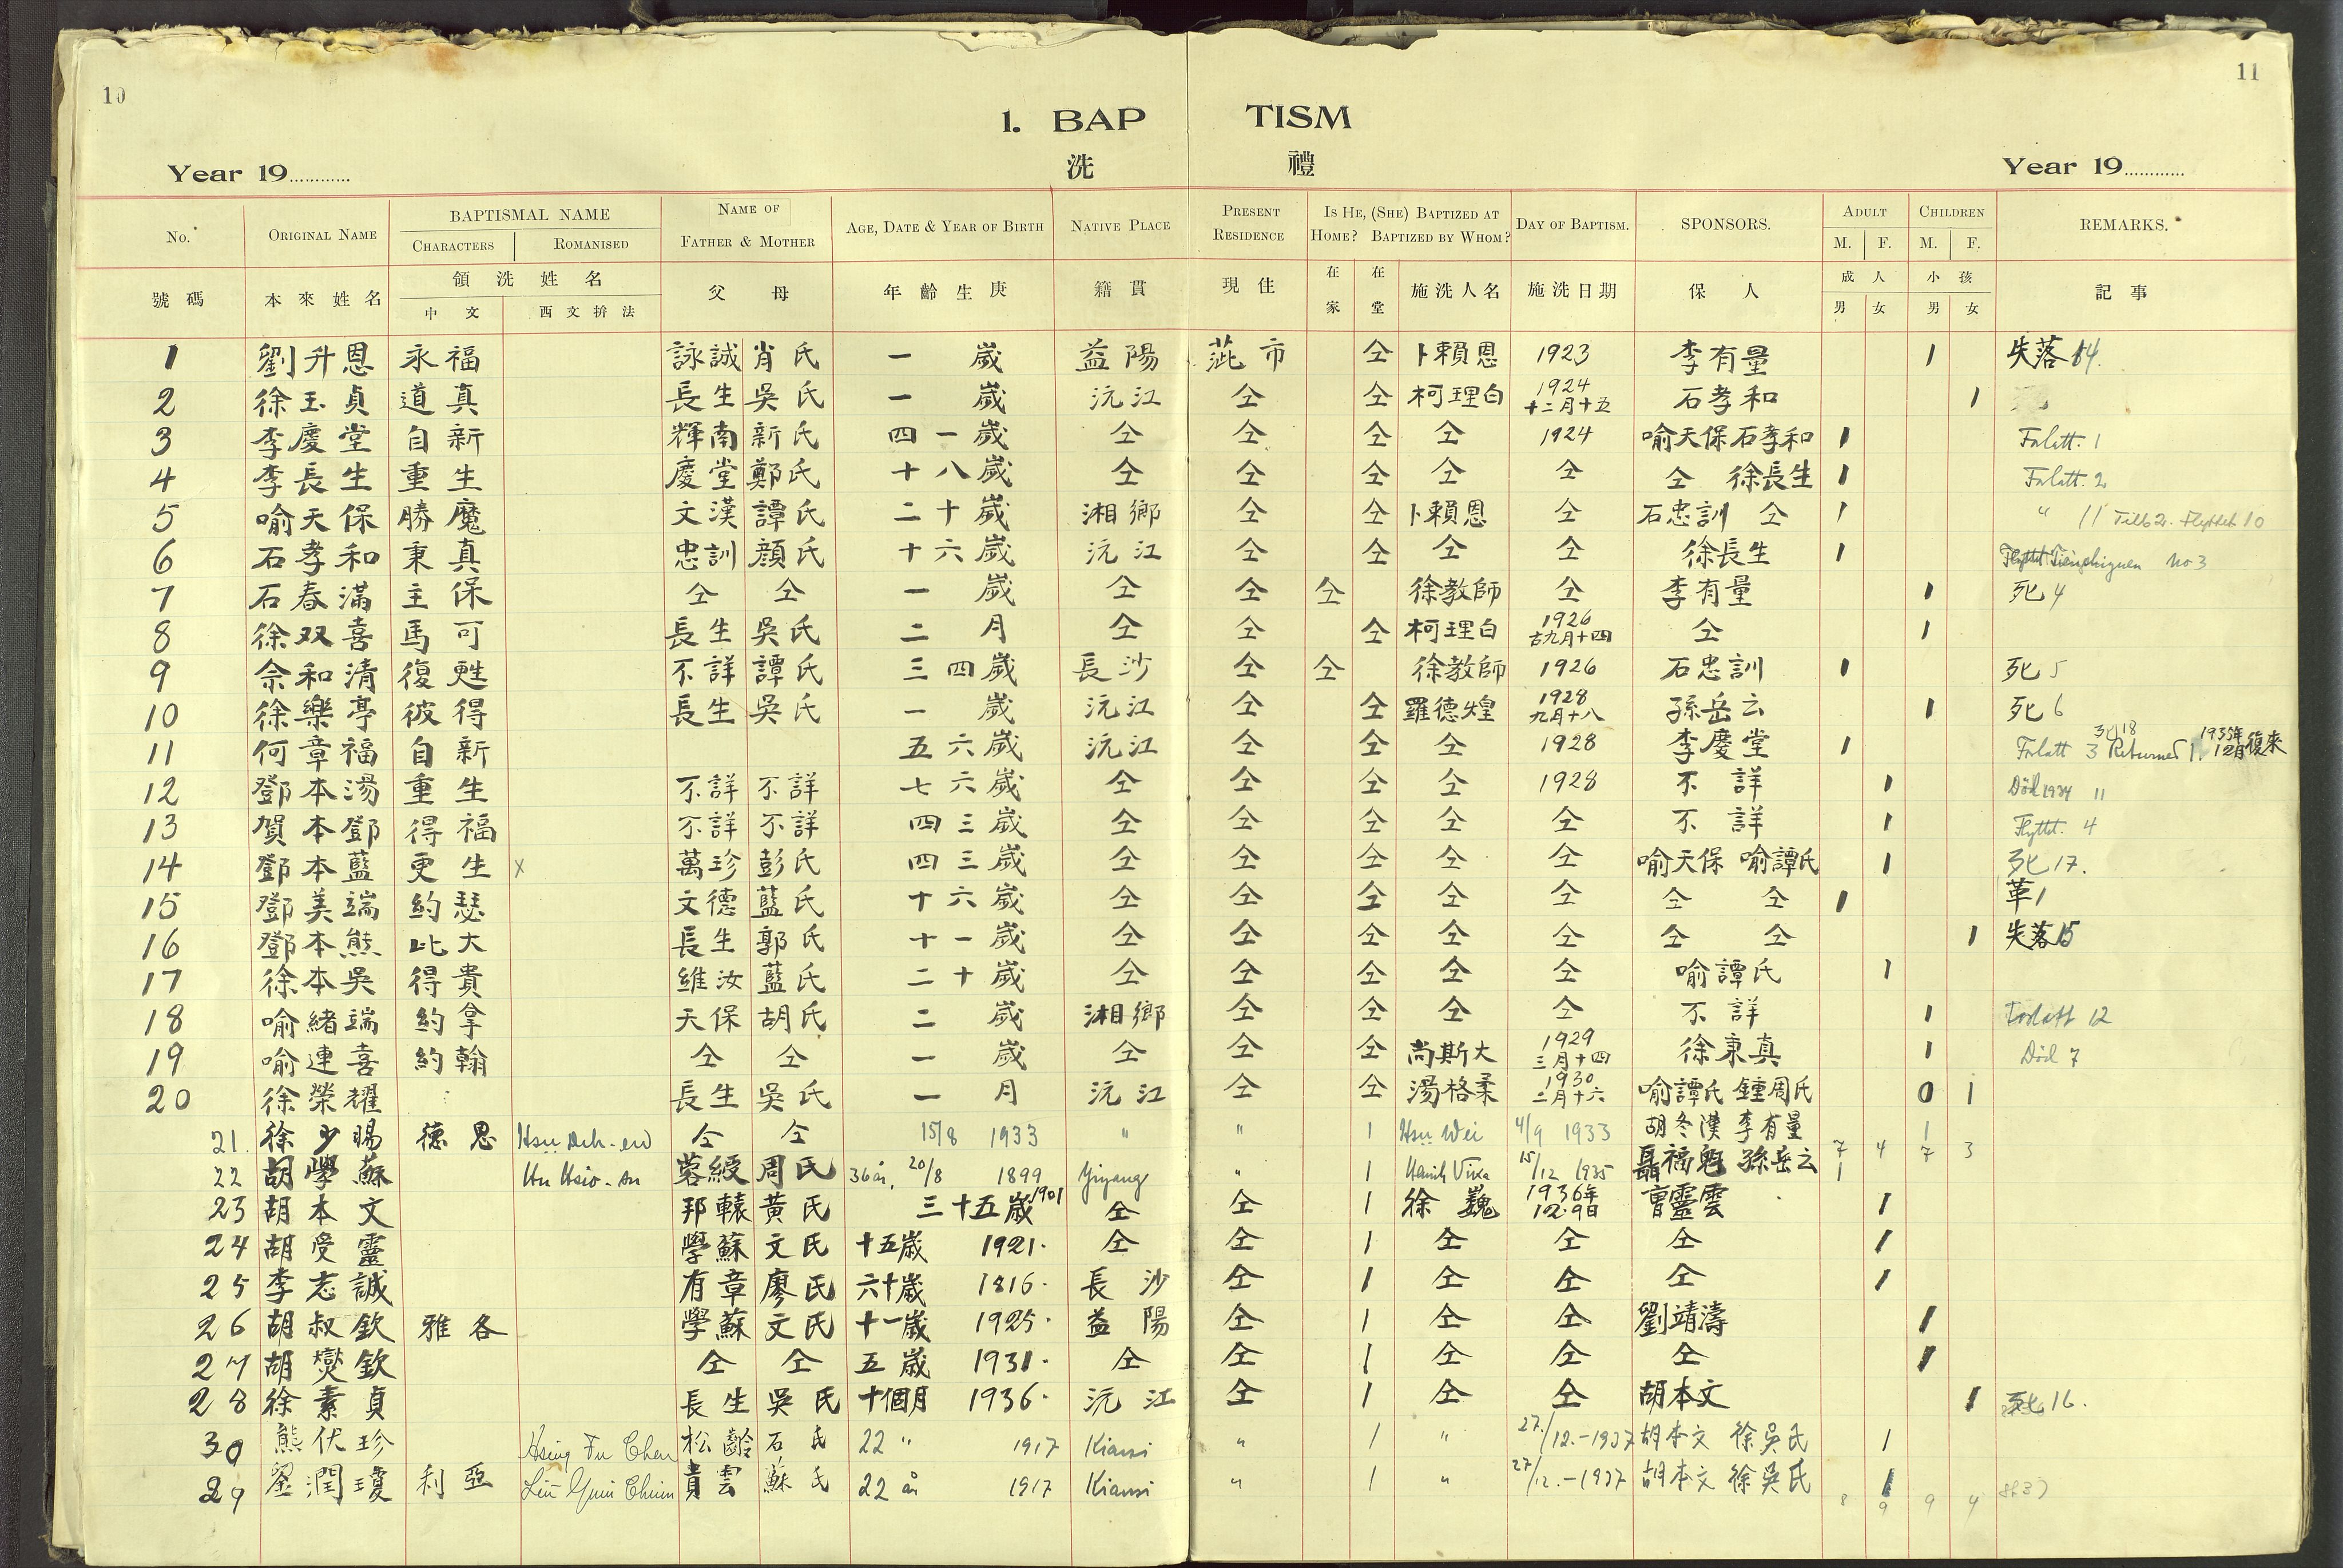 10
11
1. BAP TISM
洗 禮
Year 19............ Year 19............
No. ORIGINAL NAME BAPTISMAL NAME CHARACTERS ROMANISED NAME OF FATHER & MOTHER AGE, DATE & YEAR OF BIRTH NATIVE PLACE PRESENT RESIDENCE IS HE, (SHE) BAPTIZED AT HOME? BAPTIZED BY WHOM? DAY OF BAPTISM. SPONSORS. ADULT M. F. CHILDREN M. F. REMARKS.
號碼 本來姓名 領洗姓名 中文 西文拚法 父 母 年齡生庚 籍貫 現住 在家 在堂 施洗人名 施洗日期 保人 成人 男 女 小孩 男 女 記事
1 劉升恩 永福 詠誠 肖氏 一歲 益陽 市 仝 卜賴恩 1923 李有量 1 失落
2 徐玉貞 道真 長生 吳氏 一歲 沅江 仝 仝 柯理白 1924 十二月十五 石孝和 1
3 李慶堂 自新 輝南 新氏 四一歲 仝 仝 仝 仝 1924 喻天保 石孝和 1 Forlatt. 1
4 李長生 重生 慶堂 鄭氏 十八歲 仝 仝 仝 仝 仝 仝 徐長生 1 Forlatt. 2
5 喻天保 勝魔 文漢 譚氏 二十歲 湘鄉 仝 仝 卜賴恩 仝 石忠訓 仝 1 " 11 Flyttet 10
6 石孝和 秉真 忠訓 顏氏 十六歲 沅江 仝 仝 仝 仝 徐長生 1 No 3
7 石春滿 主保 仝 仝 一歲 仝 仝 仝 徐教師 仝 李有量 1 死 4
8 徐双喜 馬可 長生 吳氏 二月 仝 仝 仝 柯理白 1926 古九月十四 仝 1
9 佘和清 復甦 不詳 譚氏 三四歲 長沙 仝 仝 徐教師 1926 石忠訓 1 死 5
10 徐樂亭 彼得 長生 吳氏 一歲 沅江 仝 仝 羅德煌 1928 九月十八 孫岳云 1 死 6
11 何章福 自新 五六歲 沅江 仝 仝 仝 1928 李慶堂 1 Forlatt 3 死18 Returned 1935年12月復來
12 鄧本湯 重生 不詳 不詳 七六歲 仝 仝 仝 仝 1928 不詳 1 Död 1934 11
13 賀本鄧 得福 不詳 不詳 四三歲 仝 仝 仝 仝 仝 不詳 1 Flyttet. 4
14 鄧本藍 更生 x 萬珍 彭氏 四三歲 仝 仝 仝 仝 仝 喻天保 喻譚氏 1 死 17.
15 鄧美端 約瑟 文德 藍氏 十六歲 仝 仝 仝 仝 仝 仝 仝 1 革1
16 鄧本熊 比大 長生 郭氏 十一歲 仝 仝 仝 仝 仝 仝 仝 1 失落15
17 徐本吳 得貴 維汝 藍氏 二十歲 仝 仝 仝 仝 仝 喻譚氏 1
18 喻緒端 約拿 天保 胡氏 二歲 湘鄉 仝 仝 仝 仝 不詳 1 Forlatt 12
19 喻連喜 約翰 仝 仝 一歲 仝 仝 仝 尚斯大 1929 三月十四 徐秉真 1 Död 7
20 徐榮耀 長生 吳氏 一月 沅江 仝 仝 湯格柔 1930 二月十六 喻譚氏 鍾周氏 0 1
21. 徐少賜 德恩 Hsu Deh-en 仝 仝 15/8 1933 " " 1 Hsu Wei 4/9 1933 胡冬漢 李有量 1
7 4 7 3
22 胡學蘇 Hu Hsio-su 蓉綬 周氏 36 år, 20/8 1899 Yiyang " 1 15/12 1935 聶福魁 孫岳云 1
23 胡本文 邦轅 黃氏 三十五歲 1901 仝 仝 1 徐巍 1936年 12.9日 曾靈雲 1
24 胡受靈 學蘇 文氏 十五歲 1921. 仝 仝 1 仝 仝 仝 1
25 李志誠 有章 廖氏 六十歲 1816. 長沙 仝 1 仝 仝 仝 1
26 胡叔欽 雅各 學蘇 文氏 十一歲 1925. 益陽 仝 1 仝 仝 劉靖濤 1
27 胡爕欽 仝 仝 五歲 1931. 仝 仝 1 仝 仝 仝 1
28 徐素貞 長生 吳氏 十個月 1936. 沅江 仝 1 仝 仝 胡本文 1 死 16.
30 熊伏珍 Hsiung Fu Chen 松齡 石氏 22 " 1917 Kiansi " 1 " 27./12.-1937 胡本文 徐吳氏 1
29 劉潤瓊 利亞 Liu Yuin Chiun 貴雲 蘇氏 22 år 1917 Kiansi " 1 " 27/12.-1937 胡本文 徐吳氏 1
8 9 9 4